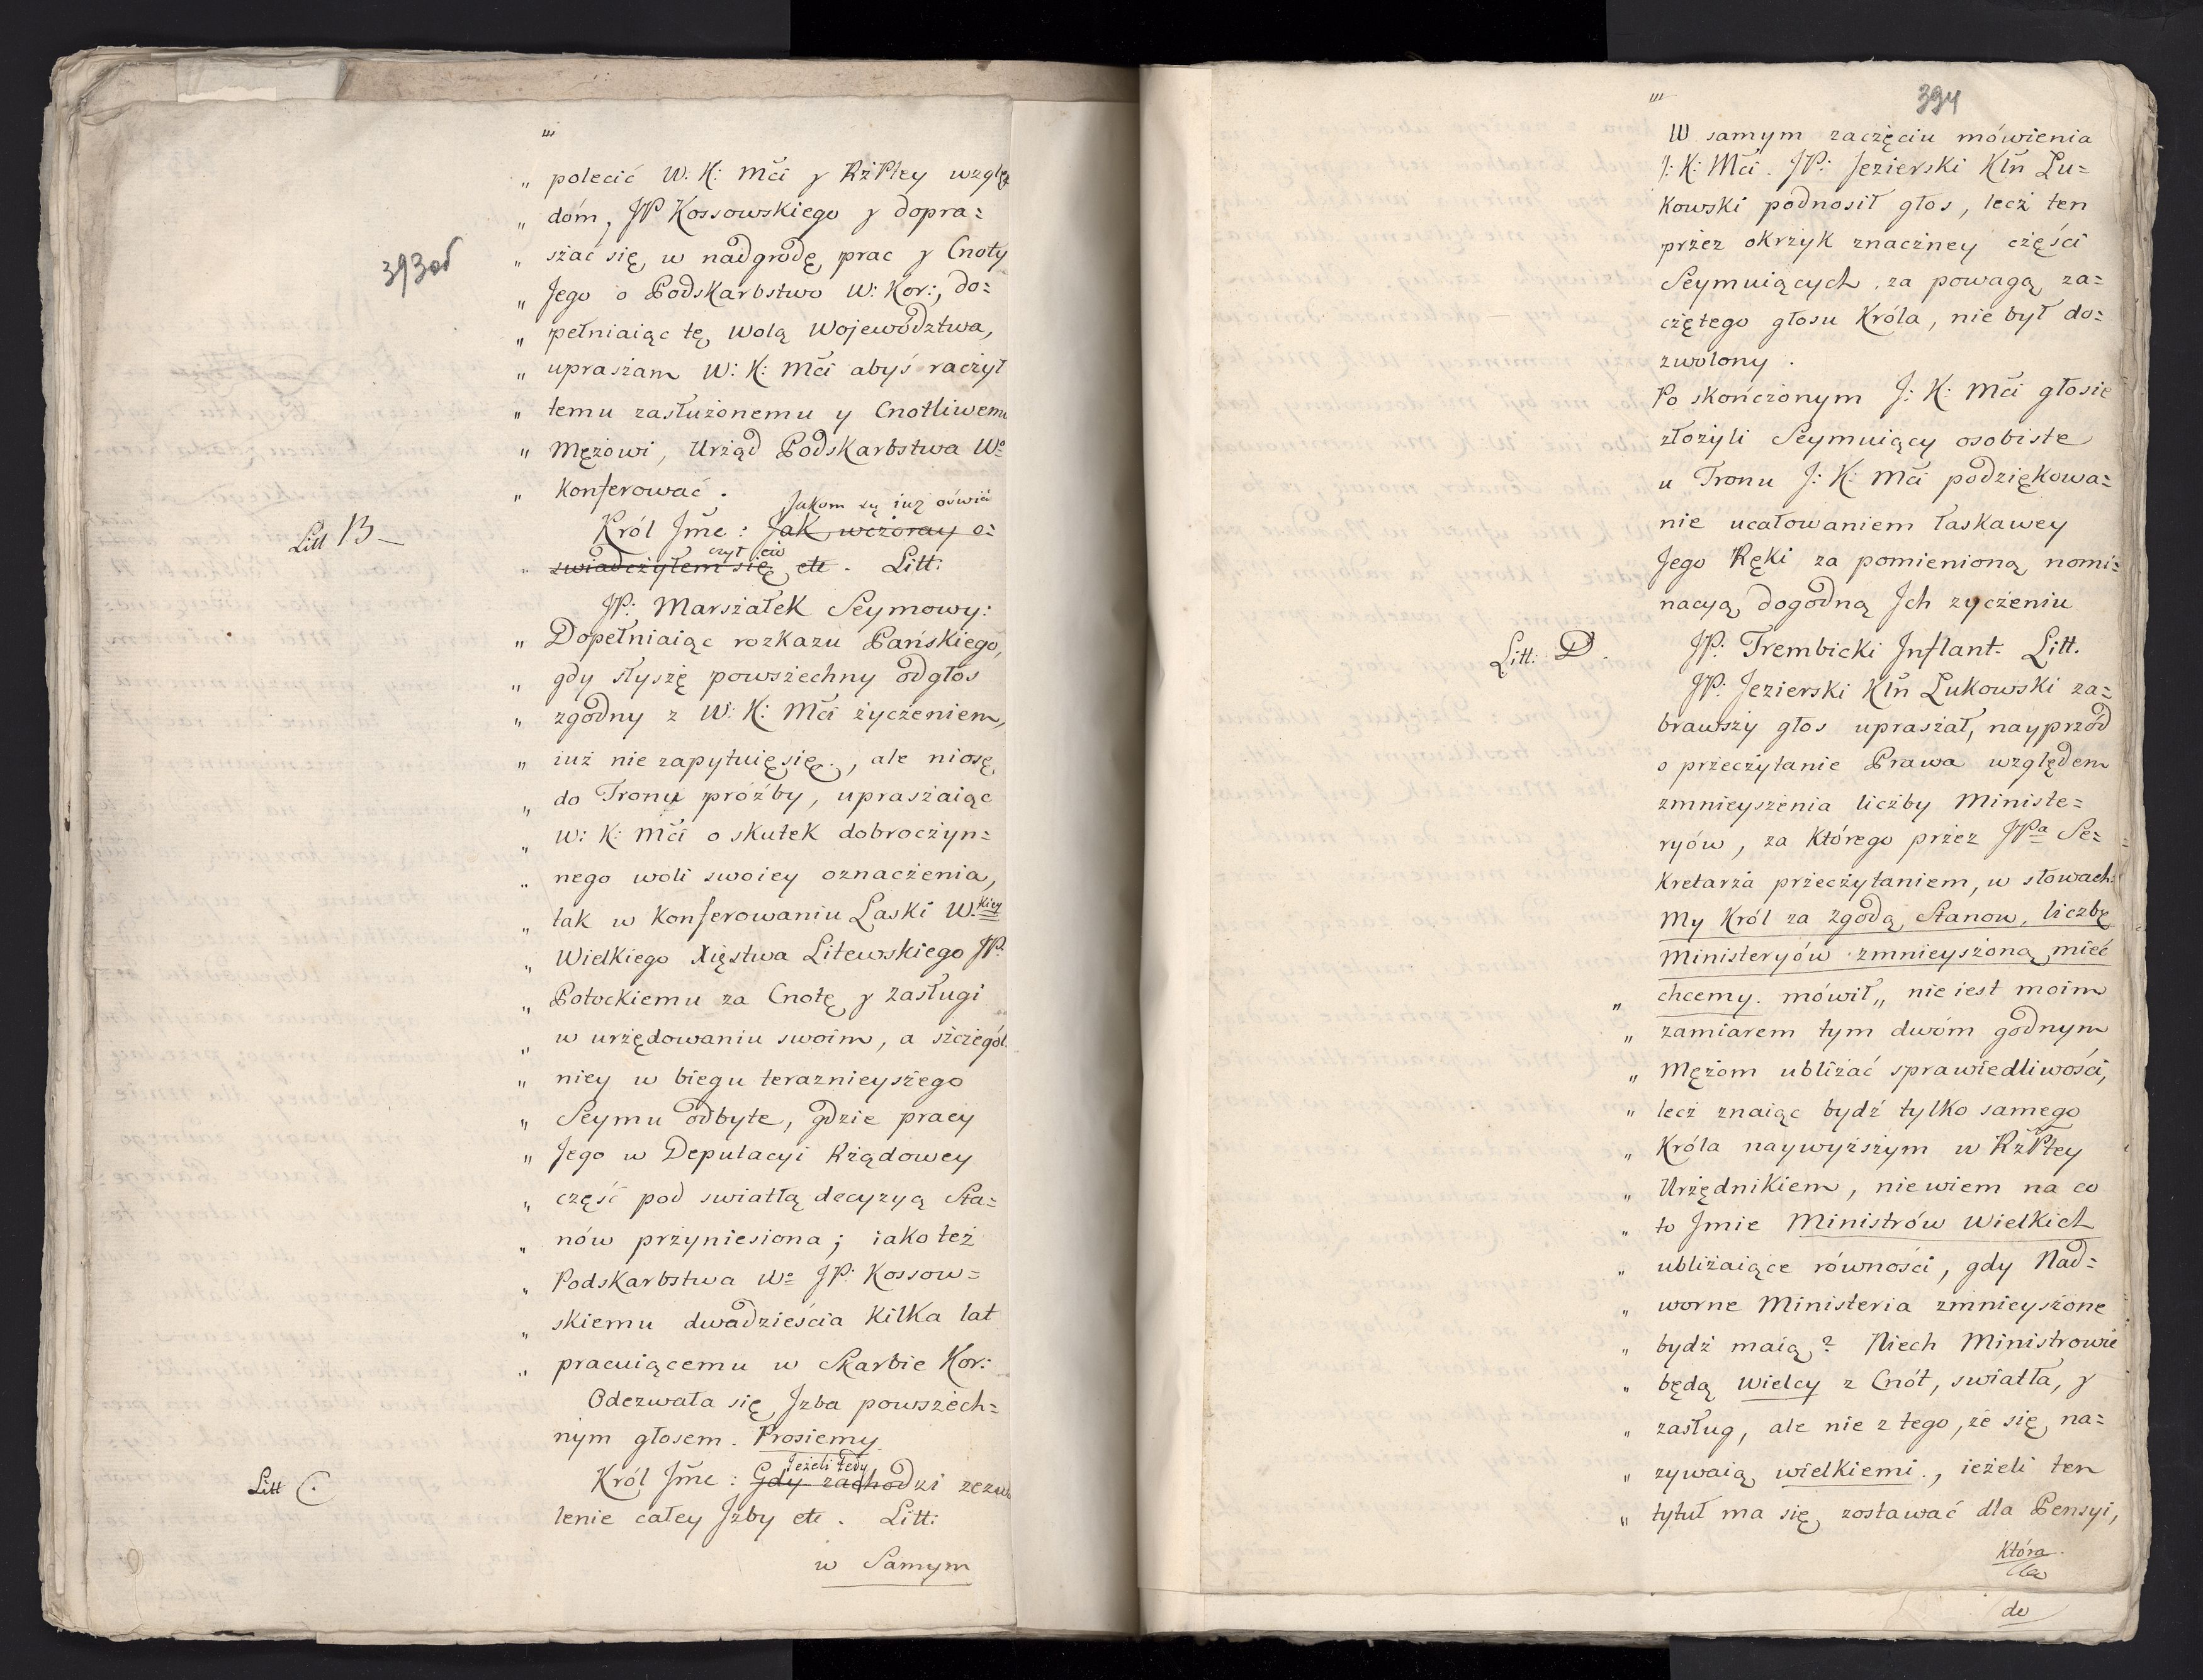 393od
„ polecić W. K: Mći y RżPley wzglę
„ dóm, JP Kossowskiego y dopra=
„ szać się, w nadgrodę prac y Cnoty
„ Jego o Podskarbstwo W: Kor:, do=
„ pełniaiąc tę wolą Wojewodztwa,
„ upraszam W: K: Mći abyś raczył
„ temu zasłużonemu y Cnotliwemu
„ Mężowi, Urząd Podskarbstwa Wo
„ Konferować.
Jakom się iuż oświé
Litt B
Król Jmć: Jak wczoray o=
czył etc
swiadczyłem się etc. Litt:
JP: Marszałek Seymowy:
„ Dopełniaiąc rozkazu Pańskiego,
„ gdy słyszę powszechny odgłos
„ zgodny z W: K: Mći życzeniem,
„ iuż nie zapytuię się, ale niosę
„ do Tronu próźby, upraszaiąc
„ W: K: Mći o skutek dobroczyn=
„ nego woli swoiey oznaczenia,
„ tak w Konferowaniu Laski W.kiey
„ Wielkiego Xięstwa Litewskiego JP.
„ Potockiemu za Cnotę y zasługi
„ w urzędowaniu swoim, a szczegól.
„ niey w biegu teraznieyszego
„ Seymu odbyte, gdzie pracy
„ Jego w Deputacyi Rządowey
„ część pod swiatłą decyzyą Sta=
„ nów przyniesiona; iako też
„ Podskarbstwa Wo JP. Kossow=
„ skiemu dwadzieścia kilka lat
„ pracuiącemu w Skarbie Kor:
Odezwała się Jzba powszech=
nym głosem. Prosiemy
Jeżeli tedy
Litt C.
Król Jmć: Gdy zachodzi zezwo
lenie całey Jzby etc. Litt:
w Samym
394
W samym zaczęciu mówienia
J: K: Mći. JP: Jezierski Kłn Łu=
kowski podnosił głos, lecz ten
przez okrzyk znaczney części
Seymuiących, za powagą za=
czętego głosu Króla, nie był do=
zwolony.
Po skończonym J: K: Mći głosie
złożyli Seymuiący osobiste
u Tronu J: K: Mći podziękowa=
nie ucałowaniem łaskawey
Jego Ręki za pomienioną nomi=
nacyą dogodną Ich zyczeniu
Litt: D.
JP: Trembicki Jnflant. Litt.
JP: Jezierski Kłn Łukowski za=
brawszy głos upraszał, nayprzód
o przeczytanie Prawa względem
zmnieyszenia liczby Ministe=
ryów, za którego przez JPa Se=
kretarza przeczytaniem, w słowach:
My Król za zgodą Stanow, liczbę
Ministeryów zmnieyszoną mieć
„ chcemy. mówił„ nie iest moim
„ zamiarem tym dwóm godnym
„ Mężom ubliżać sprawiedliwości,
„ lecz znaiąc bydź tylko samego
„ Króla naywyższym w RżPtey
„ Urzędnikiem, nie wiem na co
„ to Jmie Ministrów Wielkich
„ ubliżaiące równości, gdy Nad=
„ worne Ministeria zmnieyszone
„ bydź maią? Niech Ministrowie
„ będą Wielcy z Cnót, swiatła, y
„ zasług, ale nie z tego, że się na=
„ zywaią wielkiemi, ieżeli ten
„ tytuł ma się zostawać dla Pensyi,
która
do